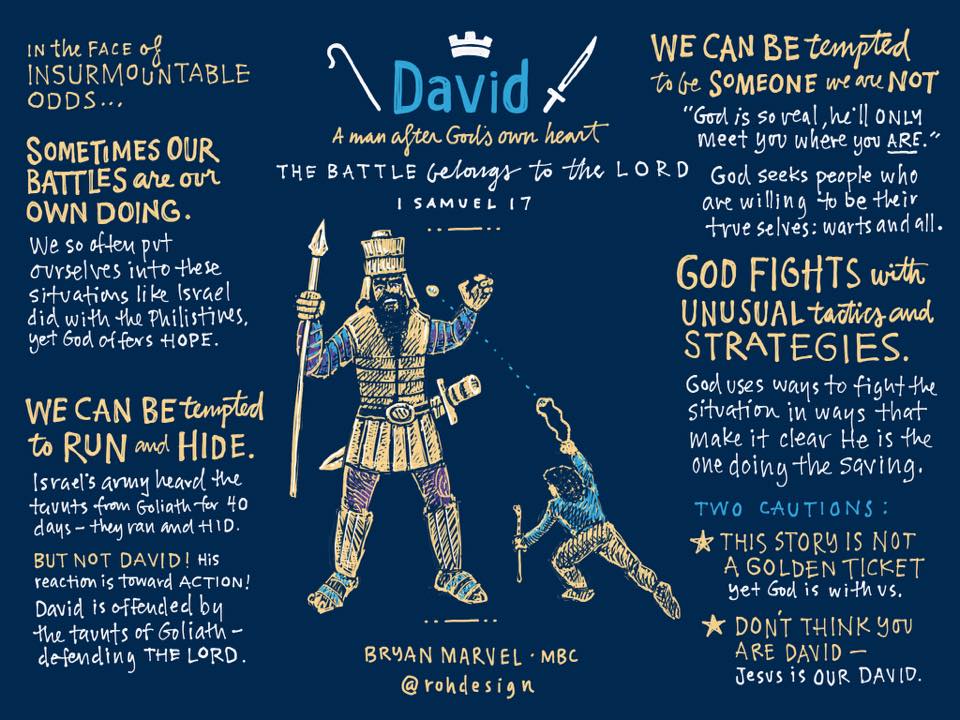 David
A man after God's own heart
THE BATTLE belongs to the LORD
1 SAMUEL 17
IN the FACE of
INSURMOUNTABLE
ODDS...
SOMETIMES OUR
BATTLES are our
OWN DOING.
We so often put
ourselves into these
situations like Israel
did with the Philistines,
yet God offers HOPE.
WE CAN BE tempted
to RUN and HIDE.
Israel's army heard the
taunts from Goliath for 40
days – they ran and HID.
BUT NOT DAVID! His
reaction is toward ACTION!
David is offended by
the taunts of Goliath –
defending THE LORD.
WE CAN BE tempted
to be SOMEONE we are NOT
"God is so real, he'll ONLY
meet you where you ARE."
God seeks people who
are willing to be their
true selves: warts and all.
GOD FIGHTS with
UNUSUAL tactics and
STRATEGIES.
God uses ways to fight the
situation in ways that
make it clear He is the
one doing the saving.
TWO CAUTIONS:
★ THIS STORY IS NOT
A GOLDEN TICKET
yet God is with us.
★ DON'T THINK YOU
ARE DAVID –
Jesus is OUR DAVID.
BRYAN MARVEL · MBC
@rohdesign